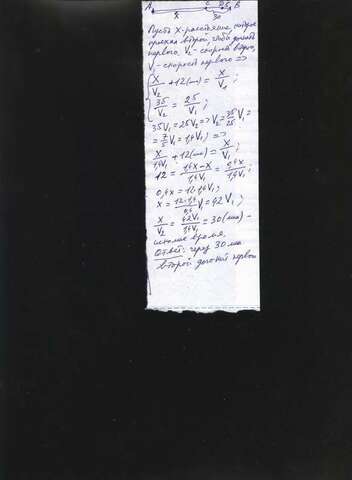 A C 25 B
x 30
Пусть X-расстояние, которое
проехал второй, чтобы догнать
первого. V₂-скорость второго,
V₁-скорость первого =>
X/V₂ + 12(мин) = X/V₁
35/V₂ = 25/V₁;
35V₁ = 25V₂ => V₂ = 35/25 V₁ =
= 7/5 V₁ = 1,4V₁) =>
X/1,4V₁ + 12(мин) = X/V₁;
12 = 1,4X-X/1,4V₁ = 0,4X/1,4V₁;
0,4X = 12·1,4V₁;
X = 12·1,4/0,4 V₁ = 42V₁;
X/V₂ = 42V₁/1,4V₁ = 30(мин) -
искомое время.
Ответ: через 30 мин
второй догонит первого